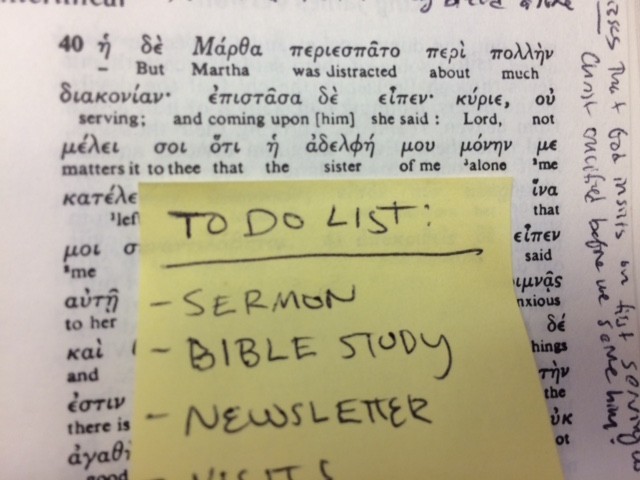 40 ἡ δὲ Μάρθα περιεσπᾶτο περὶ πολλὴν
– But Martha was distracted about much
διακονίαν· ἐπιστᾶσα δὲ εἶπεν· κύριε, οὐ
serving; and coming upon [him] she said : Lord, not
μέλει σοι ὅτι ἡ ἀδελφή μου μόνην με
matters it to thee that the sister of me ²alone ¹me
κατέλε ἵνα
³left that
μοι σ εἶπεν
¹me said
αὐτῇ ιμνᾷς
to her nxious
καὶ δέ
and hings
ἐστιν τὴν
there is the
ἀγαθὴ ὐκ
good ot
TO DO LIST:
- SERMON
- BIBLE STUDY
- NEWSLETTER
- VISITS
that God insists on first serving us
Christ crucified before we serve him!